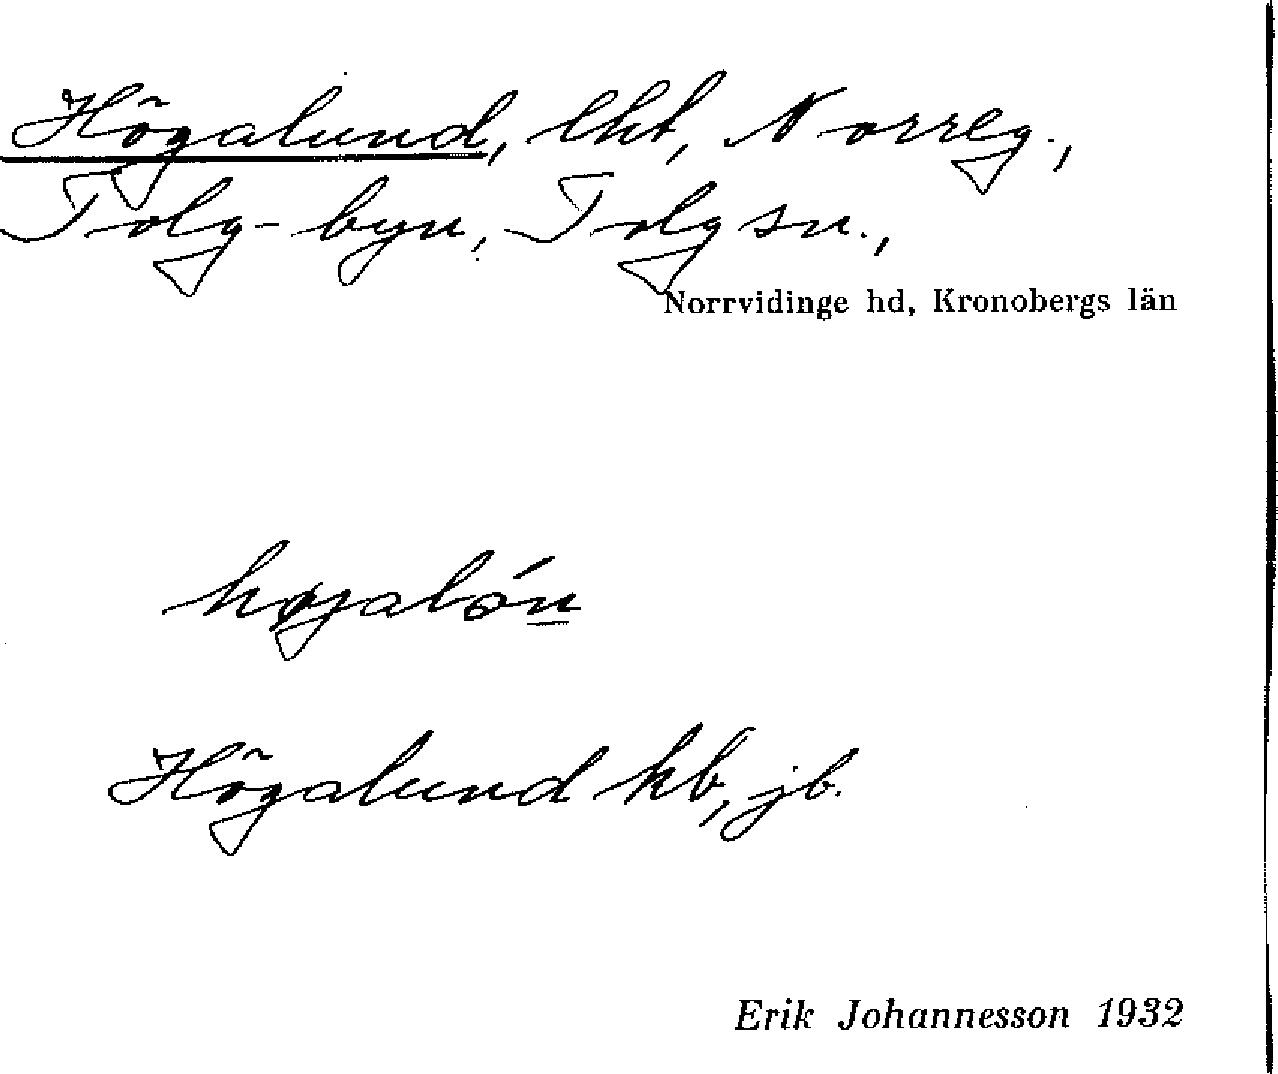 Högalund, lht, Norreg.,
Tolg-byn, Tolg sn.,
Norrvidinge hd, Kronobergs län
høgalón
Högalund kb, jb.
Erik Johannesson 1932